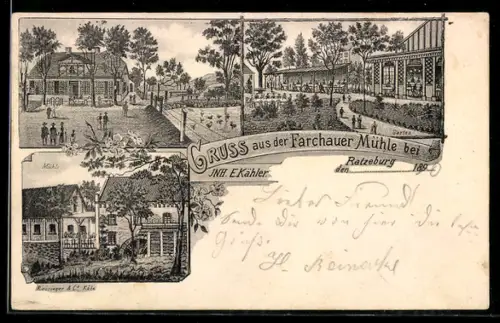 Garten
GRUSS aus der Farchauer Mühle bei
Ratzeburg
INH. E. Kähler
den 189
Lieber Freund
Sende dir von hier die besten
Grüße
H. Reinacke